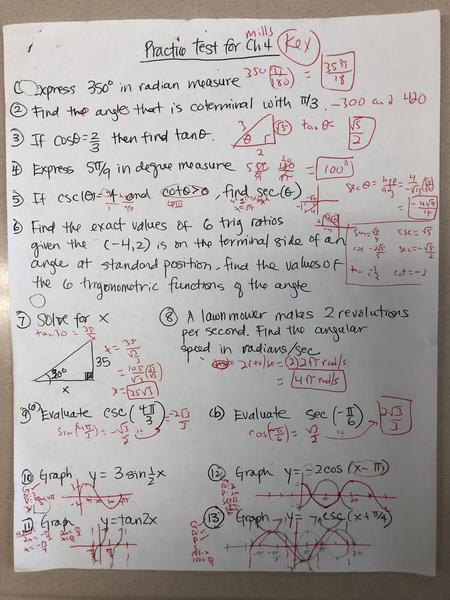 Practice Test for Ch 4
mills
Key
① Express 350° in radian measure 350 π/180 = 35π/18
② Find the angle that is coterminal with π/3. -300 and 420
③ If cosθ = 2/3 then find tanθ. 3 √5 θ 2 tanθ = √5/2
④ Express 5π/9 in degree measure = 100°
⑤ If csc(θ) = -4 and cotθ>0, find sec(θ) secθ = hyp/adj = -4√15/15
⑥ Find the exact values of 6 trig ratios
given the (-4,2) is on the terminal side of an
angle at standard position, find the values of
the 6 trigonometric functions of the angle
sin = √5/5 csc = √5
cos -2√5/5 sec = -√5/2
tan = -1/2 cot = -2
⑦ Solve for x
tan30 = 35/x
30° 35 x
x = 35√3
⑧ A lawnmower makes 2 revolutions
per second. Find the angular
speed in radians/sec
(2)2π rad/s
4π rad/s
9(a) Evaluate csc(4π/3) = -2√3/3
sin(4π/3) = -√3/2
(b) Evaluate sec(-π/6) 2√3/3
cos(-π/6) = √3/2
⑩ Graph y = 3 sin ½x
⑫ Graph y = -2cos(x-π)
⑪ Graph y = tan2x
⑬ Graph y = csc(x+π/4)